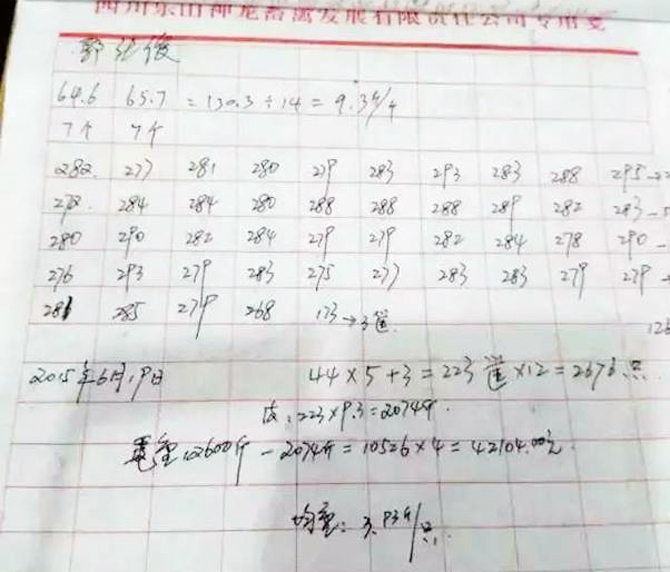 四川乐山神龙畜禽发展有限责任公司专用笺
64.6 65.7 =130.3÷14=9.3斤/个
7个 7个
282. 277 281 280 279 283 293 283 288 295→
272. 284 284 280 288 288 288 289 282 283→
280 290 282 284 279 279 282 284 278 290→
276 293 279 283 275 277 283 283 279 279→
281 285 279 268 173→3筐. 126
2015年6月19日 44×5+3=223筐×12=2676只
皮:223×9.3=2074斤.
毛重12600斤-2074斤=10526×4=42104.00元.
均重:3.93斤/只.